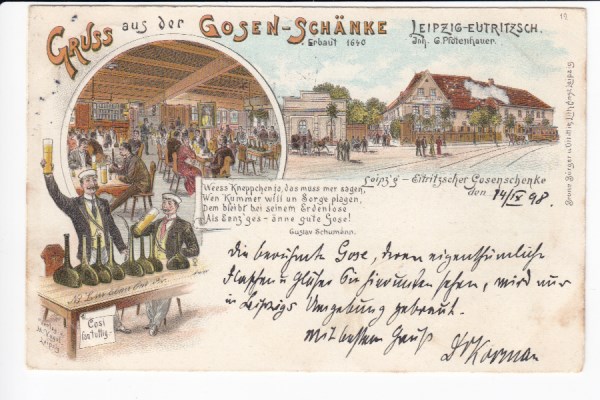 Gruss aus der Gosen-Schänke Leipzig-Eutritzsch.
Erbaut 1640 Inh. G. Pfotenhauer.
19
Weess Kneppchen jo, das muss mer sagen,
Wen Kummer will un Sorge plagen,
Dem bleibt bei seinem Erdenlose
Als Eenz'ges - änne gute Gose!
Gustav Schumann.
Leipzig - Eutritzscher Gosenschenke
den 14/IV 98.
Die berühmte Gose, deren eigenthümliche
Flaschen u Gläser Sie hierunten sehen, wird nur
in Leipzigs Umgebung gebraut.
Mit bestem Gruß
Cosi
fan tutty
Verlag v.
Leipzig
Bruno Bürger & Ottillie Lith. Anst. Leipzig